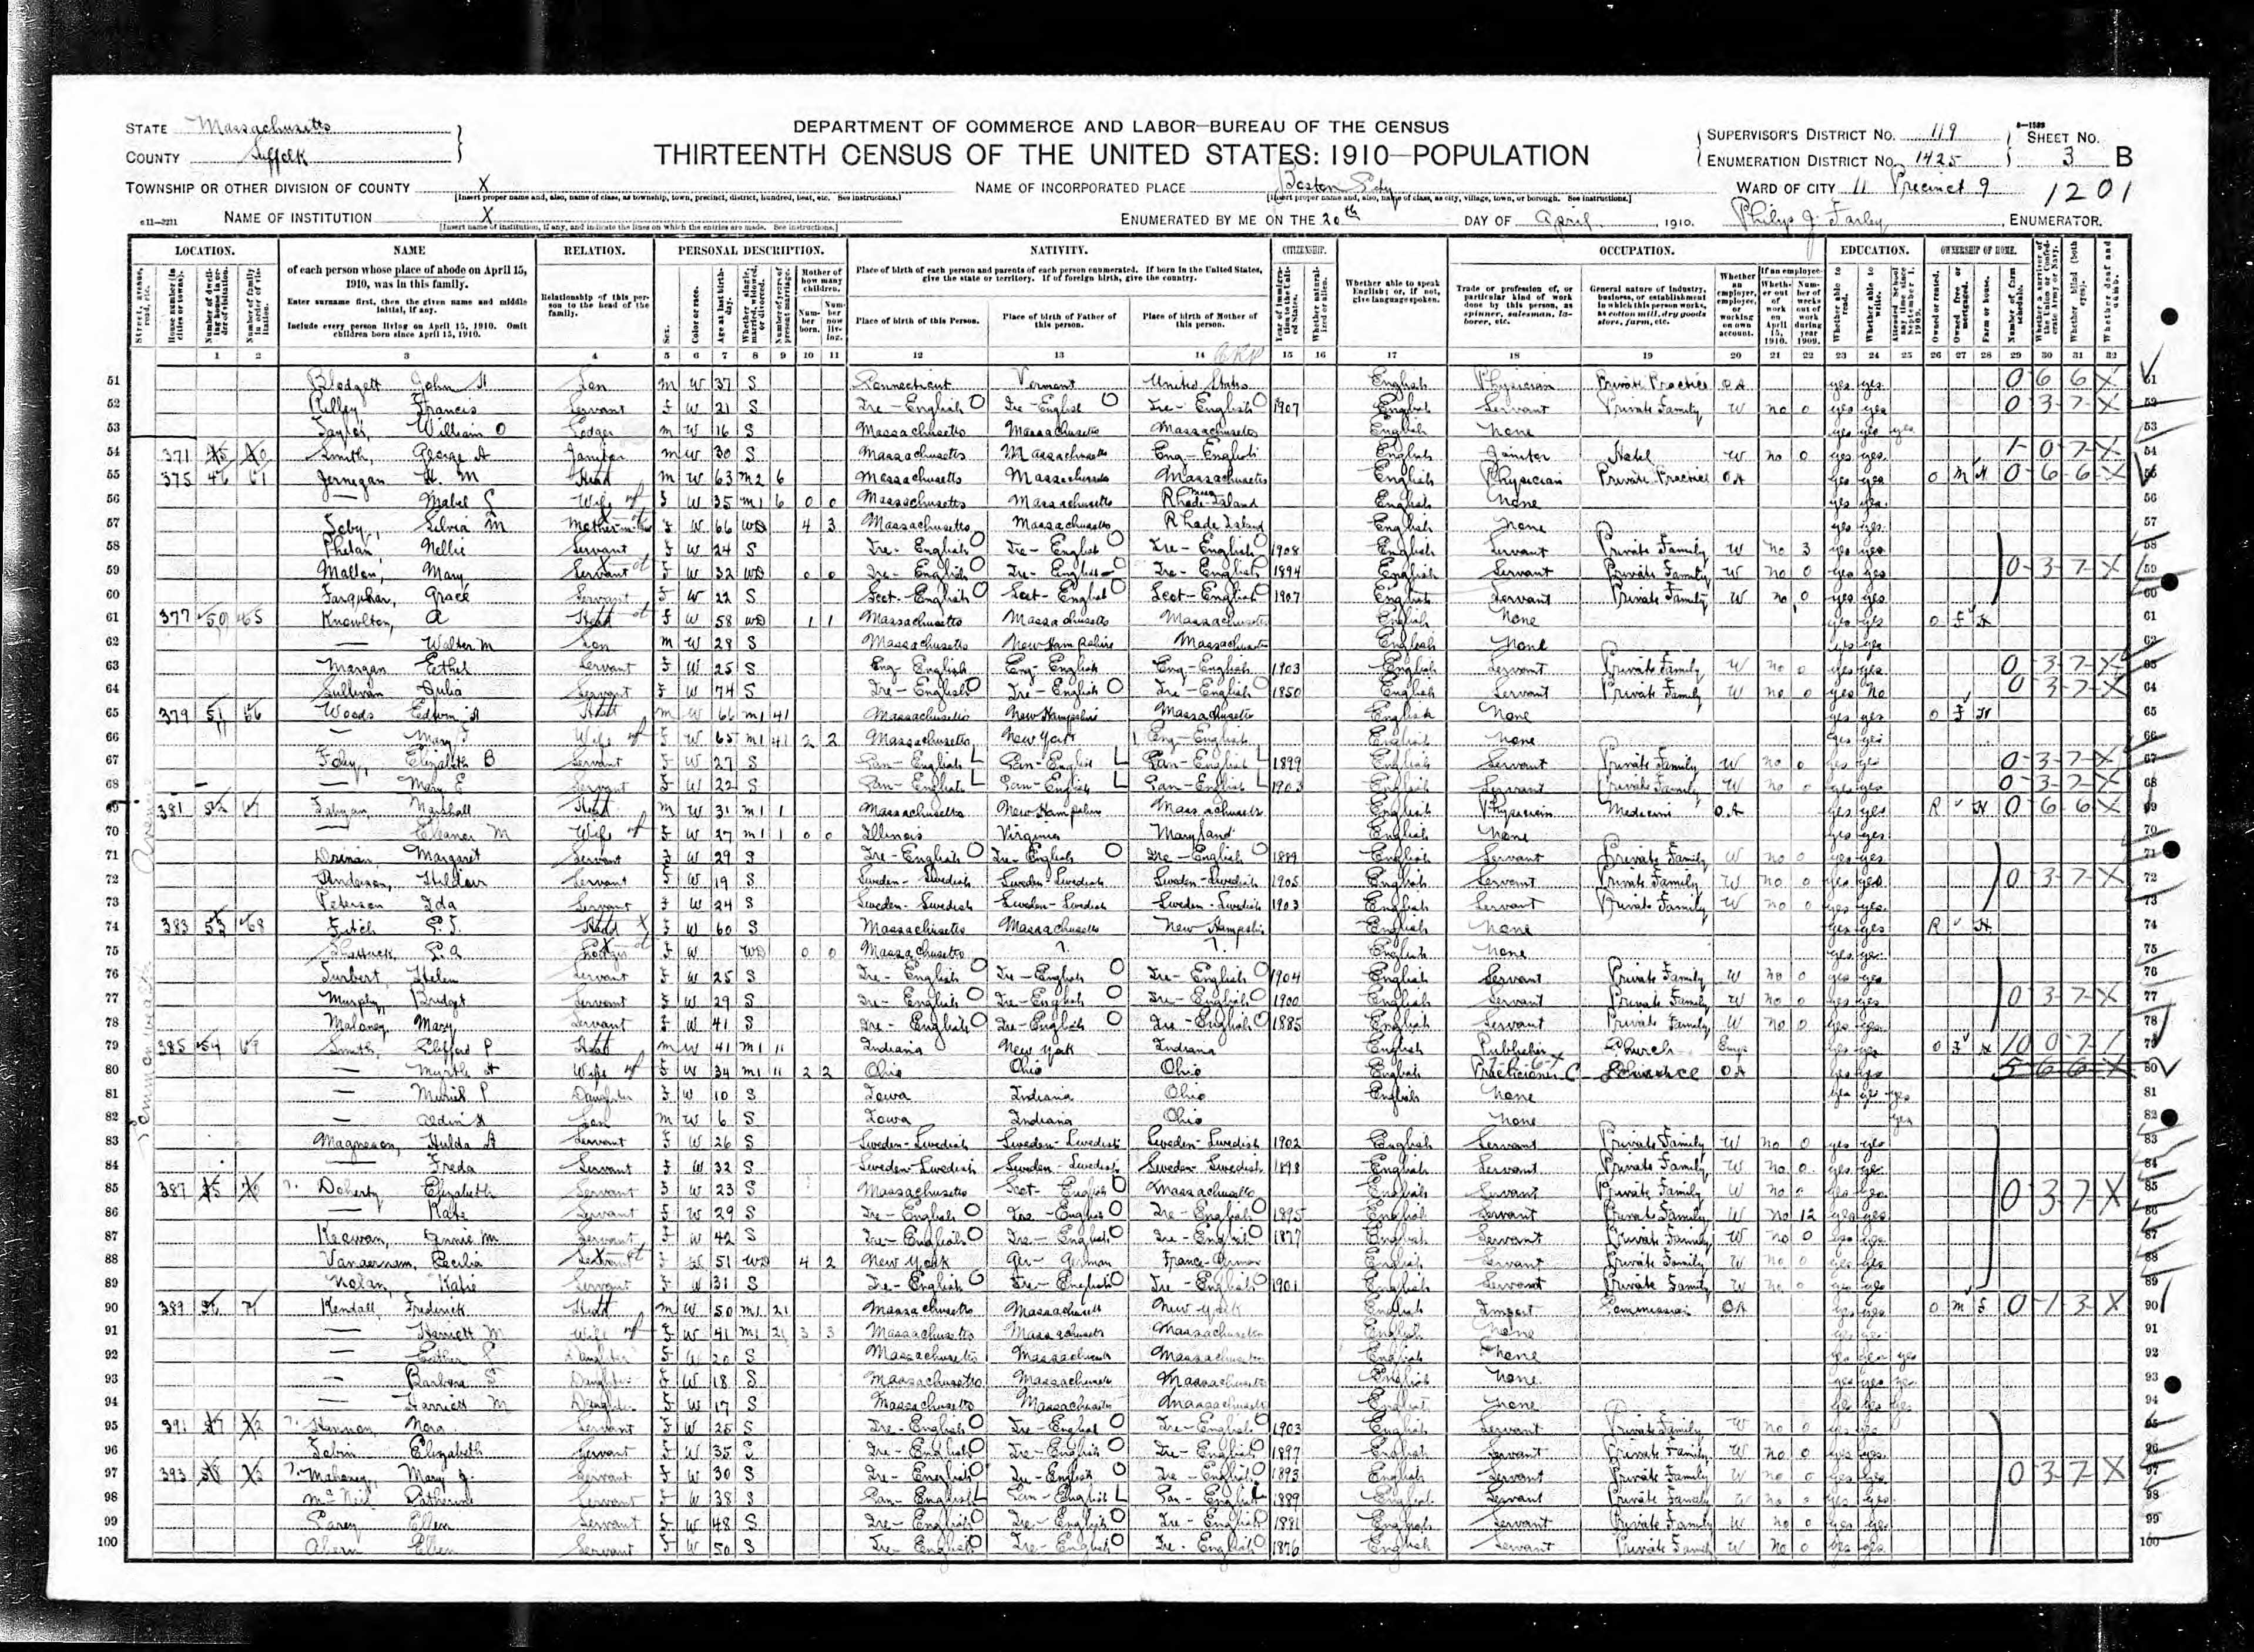 STATE Massachusetts
COUNTY Suffolk
DEPARTMENT OF COMMERCE AND LABOR—BUREAU OF THE CENSUS
THIRTEENTH CENSUS OF THE UNITED STATES: 1910—POPULATION
SUPERVISOR'S DISTRICT NO. 119
ENUMERATION DISTRICT NO. 1425
SHEET NO.
3 B
TOWNSHIP OR OTHER DIVISION OF COUNTY X
[Insert proper name and, also, name of class, as township, town, precinct, district, hundred, beat, etc. See instructions.]
NAME OF INCORPORATED PLACE Boston City
[Insert proper name and, also, name of class, as city, village, town, or borough. See instructions.]
WARD OF CITY 11 Precinct 9 1201
NAME OF INSTITUTION X
[Insert name of institution, if any, and indicate the lines on which the entries are made. See instructions.]
ENUMERATED BY ME ON THE 20th DAY OF April, 1910. Philip J. Farley, ENUMERATOR.
LOCATION. NAME RELATION. PERSONAL DESCRIPTION. NATIVITY. CITIZENSHIP. OCCUPATION. EDUCATION. OWNERSHIP OF HOME.
of each person whose place of abode on April 15, 1910, was in this family.
Enter surname first, then the given name and middle initial, if any.
Include every person living on April 15, 1910. Omit children born since April 15, 1910.
Relationship of this person to the head of the family.
Place of birth of each person and parents of each person enumerated. If born in the United States, give the state or territory. If of foreign birth, give the country.
Place of birth of this Person. Place of birth of Father of this person. Place of birth of Mother of this person.
Whether able to speak English; or, if not, give language spoken.
Trade or profession of, or particular kind of work done by this person, as spinner, salesman, laborer, etc.
General nature of industry, business, or establishment in which this person works, as cotton mill, dry goods store, farm, etc.
1 2 3 4 5 6 7 8 9 10 11 12 13 14 15 16 17 18 19 20 21 22 23 24 25 26 27 28 29 30 31 32
51 Blodgett John H Son M W 37 S Connecticut Vermont United States English Physician Private Practice OA yes yes 0 6 6 X
52 Riley Francis Servant F W 21 S Ire-English Ire-English Ire-English 1907 English Servant Private Family W no 0 yes yes 0 3 7 X
53 Taylor, William O Lodger M W 16 S Massachusetts Massachusetts Massachusetts English None yes yes yes
54 371 Smith, George A Janitor M W 30 S Massachusetts Massachusetts Eng-English English Janitor Hotel W no 0 yes yes 1 0 7 X
55 375 Jernegan H. M Head M W 63 M2 6 Massachusetts Massachusetts Massachusetts English Physician Private Practice OA yes yes O M H 0 6 6 X
56 — Mabel S Wife F W 35 M1 6 0 0 Massachusetts Massachusetts Rhode Island English None yes yes
57 Toby, Silvia M F W 66 WD 4 3 Massachusetts Massachusetts Rhode Island English None yes yes
58 Phelan, Nellie Servant F W 24 S Ire-English Ire-English Ire-English 1908 English Servant Private Family W no 3 yes yes
59 Mallen, Mary Servant F W 32 WD 0 0 Ire-English Ire-English Ire-English 1894 English Servant Private Family W no 0 yes yes 0 3 7 X
60 Farquhar, Grace Servant F W 22 S Scot-English Scot-English Scot-English 1907 English Servant Private Family W no 0 yes yes
61 377 Knowlton, A Head F W 58 WD 1 1 Massachusetts Massachusetts Massachusetts English None yes yes O F H
62 — Walter M Son M W 28 S Massachusetts New Hampshire Massachusetts English None yes yes
63 Morgan Ethel Servant F W 25 S Eng-English Eng-English Eng-English 1903 English Servant Private Family W no 0 yes yes 0 3 7 X
64 Sullivan Julia Servant F W 74 S Ire-English Ire-English Ire-English 1850 English Servant Private Family W no 0 yes No 0 3 7 X
65 379 Woods Edwin H Head M W 66 M1 41 Massachusetts New Hampshire Massachusetts English None yes yes O F H
66 — Mary F Wife F W 65 M1 41 2 2 Massachusetts New York Eng-English English None yes yes
67 Foley, Elizabeth B Servant F W 27 S Can-English Can-English Can-English 1899 English Servant Private Family W no 0 yes yes 0 3 7 X
68 — Mary E Servant F W 22 S Can-English Can-English Can-English 1903 English Servant Private Family W no 0 yes yes 0 3 7 X
69 381 Fabyan, Marshall Head M W 31 M1 1 Massachusetts New Hampshire Massachusetts English Physician Medicine OA yes yes R H 0 6 6 X
70 — Eleanor M Wife F W 27 M1 1 0 0 Illinois Virginia Maryland English None yes yes
71 Drinan, Margaret Servant F W 29 S Ire-English Ire-English Ire-English 1889 English Servant Private Family W no 0 yes yes
72 Anderson, Hildur Servant F W 19 S Sweden-Swedish Sweden-Swedish Sweden-Swedish 1905 English Servant Private Family W no 0 yes yes 0 3 7 X
73 Peterson Ida Servant F W 24 S Sweden-Swedish Sweden-Swedish Sweden-Swedish 1903 English Servant Private Family W no 0 yes yes
74 383 Fitch E. T. Head F W 60 S Massachusetts Massachusetts New Hampshire English None yes yes R H
75 Shattuck, Lodger F W WD 0 0 Massachusetts ? ? English None yes yes
76 Turbert, Helen Servant F W 25 S Ire-English Ire-English Ire-English 1904 English Servant Private Family W no 0 yes yes
77 Murphy, Bridget Servant F W 29 S Ire-English Ire-English Ire-English 1900 English Servant Private Family W no 0 yes yes 0 3 7 X
78 Maloney, Mary Servant F W 41 S Ire-English Ire-English Ire-English 1885 English Servant Private Family W no 0 yes yes
79 385 Smith, Clifford P Head M W 41 M1 11 Indiana New York Indiana English Publisher Church Emp yes yes O F H 10 0 7 1
80 — Myrtle H Wife F W 34 M1 11 2 2 Ohio Ohio Ohio English Practicioner C Science OA yes yes 5 6 6 X
81 — Muriel P Daughter F W 10 S Iowa Indiana Ohio English None yes yes yes
82 — Aldin H Son M W 6 S Iowa Indiana Ohio None yes
83 Magneson, Hulda A Servant F W 26 S Sweden-Swedish Sweden-Swedish Sweden-Swedish 1902 English Servant Private Family W no 0 yes yes
84 — Freda Servant F W 32 S Sweden-Swedish Sweden-Swedish Sweden-Swedish 1898 English Servant Private Family W no 0 yes yes
85 387 Doherty Elizabeth Servant F W 23 S Massachusetts Scot-English Massachusetts English Servant Private Family W no yes yes 0 3 7 X
86 — Kate Servant F W 29 S Ire-English Ire-English Ire-English 1895 English Servant Private Family W no 12 yes yes
87 Keewan, Annie M Servant F W 42 S Ire-English Ire-English Ire-English 1877 English Servant Private Family W no 0 yes yes
88 Cecilia Servant F W 51 WD 4 2 New York Ger-German France-German English Servant Private Family W no 0 yes yes
89 Nolan, Katie Servant F W 31 S Ire-English Ire-English Ire-English 1901 English Servant Private Family W no 0 yes yes
90 389 Kendall, Frederick Head M W 50 M1 21 Massachusetts Massachusetts New York English Import Commission OA yes yes O M 0 1 3 X
91 — Harriett M Wife F W 41 M1 21 3 3 Massachusetts Massachusetts Massachusetts English None yes yes
92 — Esther Daughter F W 20 S Massachusetts Massachusetts Massachusetts English None yes yes yes
93 — Barbara S Daughter F W 18 S Massachusetts Massachusetts Massachusetts English None yes yes yes
94 — Harriett M Daughter F W 17 S Massachusetts Massachusetts Massachusetts English None yes yes yes
95 391 Nora Servant F W 25 S Ire-English Ire-English Ire-English 1903 English Servant Private Family W no 0 yes yes
96 Tobin Elizabeth Servant F W 35 S Ire-English Ire-English Ire-English 1897 English Servant Private Family W no 0 yes yes
97 393 Mahoney, Mary J. Servant F W 30 S Ire-English Ire-English Ire-English 1893 English Servant Private Family W no 0 yes yes 0 3 7 X
98 McNeil Catherine Servant F W 38 S Can-English Can-English Can-English 1889 English Servant Private Family W no yes yes
99 Carey Ellen Servant F W 48 S Ire-English Ire-English Ire-English 1881 English Servant Private Family W no 0 yes yes
100 Ahern Ellen Servant F W 50 S Ire-English Ire-English Ire-English 1876 English Servant Private Family W no 0 yes yes
Commonwealth Avenue